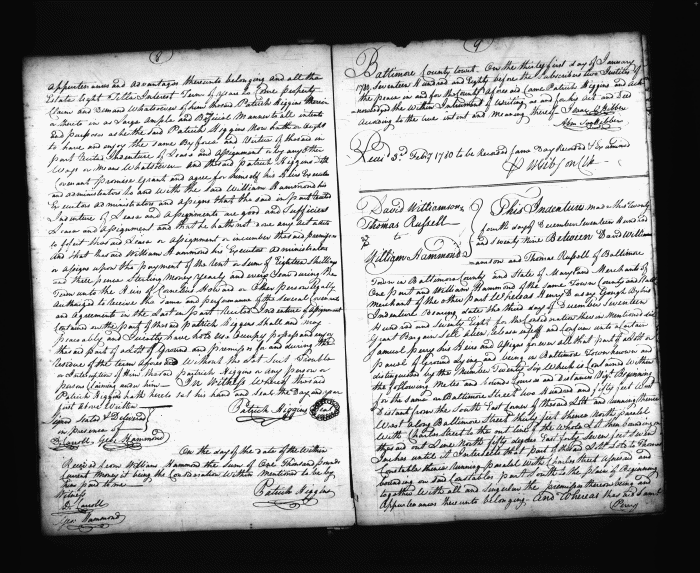 8
appurtenances and advantages thereunto belonging and all the
Estate right Title Interest Term of years to come property
Claim and Demand whatsoever of him the said Patrick Higgins therein
or thereto in as large ample and Beneficial Manner to all intents
and purposes as he the said Patrick Higgins Now hath or ought
to have and enjoy the same by force and Virtue of the said in
part recited Indenture of Lease and assignment or by any other
Ways or Means Whatsoever and the said Patrick Higgins doth
Covenant promise Grant and agree for himself his Heirs Executors
and administrators to and with the said William Hammond his
Executors administrators and assigns that the said in part recited
Indenture of Lease and assignments are good and sufficient
Lease and assignment and that he hath not done any act
to forfeit the said Lease or assignment or incumber the said premises
And that the said William Hammond his Executors administrators
or assigns upon the payment of the rent or sum of Eighteen shillings
and three pence Sterling Money Yearly and every Year during the
Term unto the Use of Cornelius Howard or Other person legally
authorized to receive the same and performance of the several Covenants
and agreements in the last in part Recited Indenture of assignment
Contained on the part of the said Patrick Higgins shall and may
peaceably and Quietly have hold use Occupy possess and enjoy
the said part of a lott of Ground and premises for and during the
residue of the term above said Without the let Suit Trouble
or Interruption of him the said Patrick Higgins or any person or
persons Claiming under him In Witness Whereof the said
Patrick Higgins hath hereto set his hand and seal the Day and year
first above Written
Signed Sealed & Delivered
in presence of
Patrick Higgins Seal
D. Carroll, Geo: Hammond
On the day of the date of the Within
Received from William Hammond the sum of One Thousand pounds
Current Money it being the Consideration Within Mentioned to be by
him paid to me
Witness
Patrick Higgins
D. Carroll
Geo: Hammond
9
Baltimore County Court. On the thirty first day of January
1780 Seventeen Hundred and Eighty before the Subscribers two Justices of
the peace in and for the County aforesaid Came Patrick Higgins and acknowledged
the within Instrument of Writing as and for his act and Deed
according to the true intent and meaning thereof
Rec'd 3d Feb'y 1780 to be recorded same Day Recorded & Examined
P Wm Gibson Clk
David Williamson &
Thomas Russell
to
William Hammond
This Indenture made this twenty
fourth day of December Seventeen Hundred
and Seventy Nine Between David Williamson
and Thomas Russell of Baltimore
Town in Baltimore County and State of Maryland Merchants of the
One part and William Hammond of the same Town County and State
Merchant of the other part Whereas Harry Dorsey Gough by his
Indenture Bearing date the third day of December Seventeen
Hundred and Seventy Eight for the Consideration therein Mentioned did
Grant Bargain Sell Alien Release Enfeoff and Confirm unto a Certain
Samuel Perry his Heirs and assigns forever all that part of a lott or
parcel of Ground lying and being in Baltimore Town known and
distinguished by the Number Twenty Six Which is Contained Within
the following Metes and Bounds Courses and Distances Viz't Beginning
for the same on Baltimore Street two Hundred and fifty feet West
Distant from the South East Corner of the said Lott and running thence
West along Baltimore Street thirty feet thence North parallel
With Charles Street to the out line of the Whole Lott then bounding on
the said out Line North fifty degrees East forty seven feet six
Inches until it Intersects that part of the said Lott sold to Thomas
Constable thence running parallel With Charles Street aforesaid and
bounding on said Constables part South to the place of Beginning
together With all and singular the premises thereon being and
Appurtenances thereunto belonging And Whereas the said Samuel
Perry